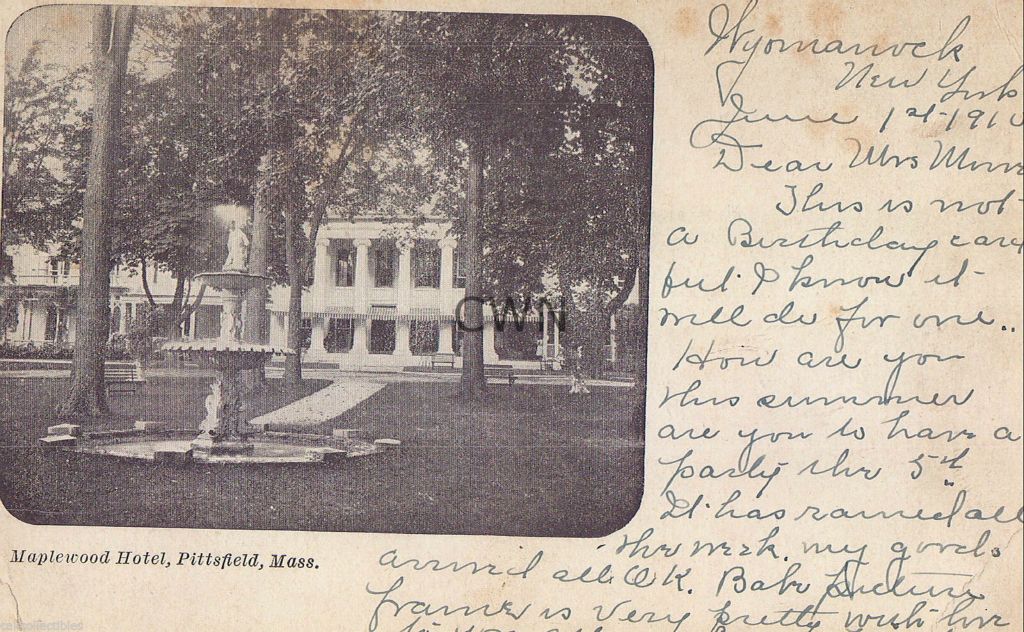 Wyomanock
New York
June 1st 1910
Dear Mrs
This is not
a Birthday card
but I know it
will do for one..
How are you
this summer
are you to have a
party the 5th
It has rained all
the week. my goods
arrived all O.K. Babe picture
frame is very pretty with
CWN
Maplewood Hotel, Pittsfield, Mass.